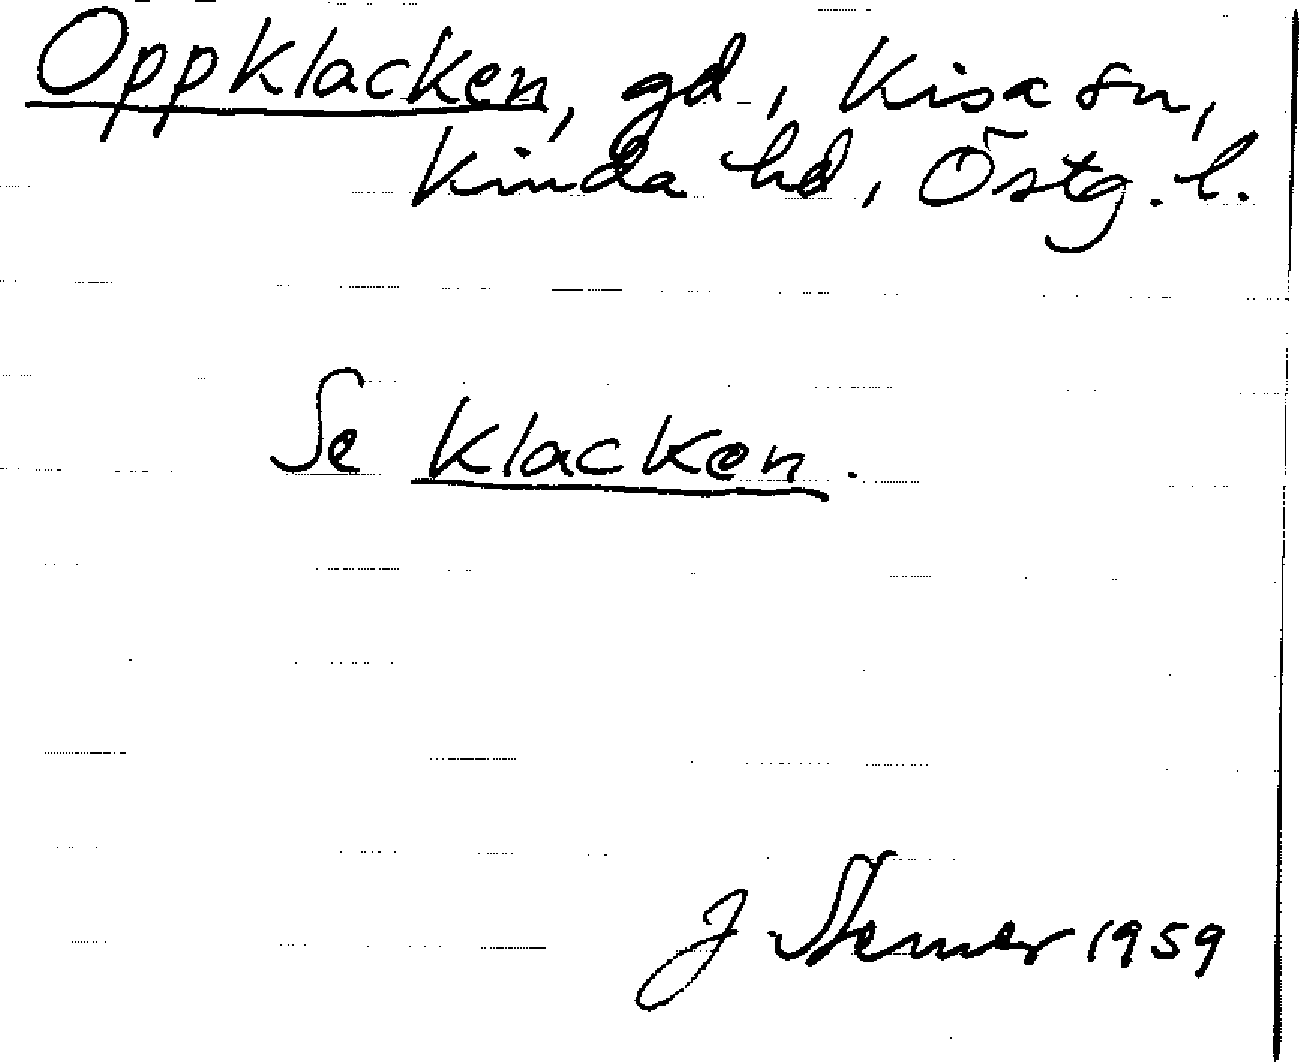 Oppklacken, gd., Kisa sn,
Kinda hd, Östg. l.
Se Klacken.
J Sterner 1959